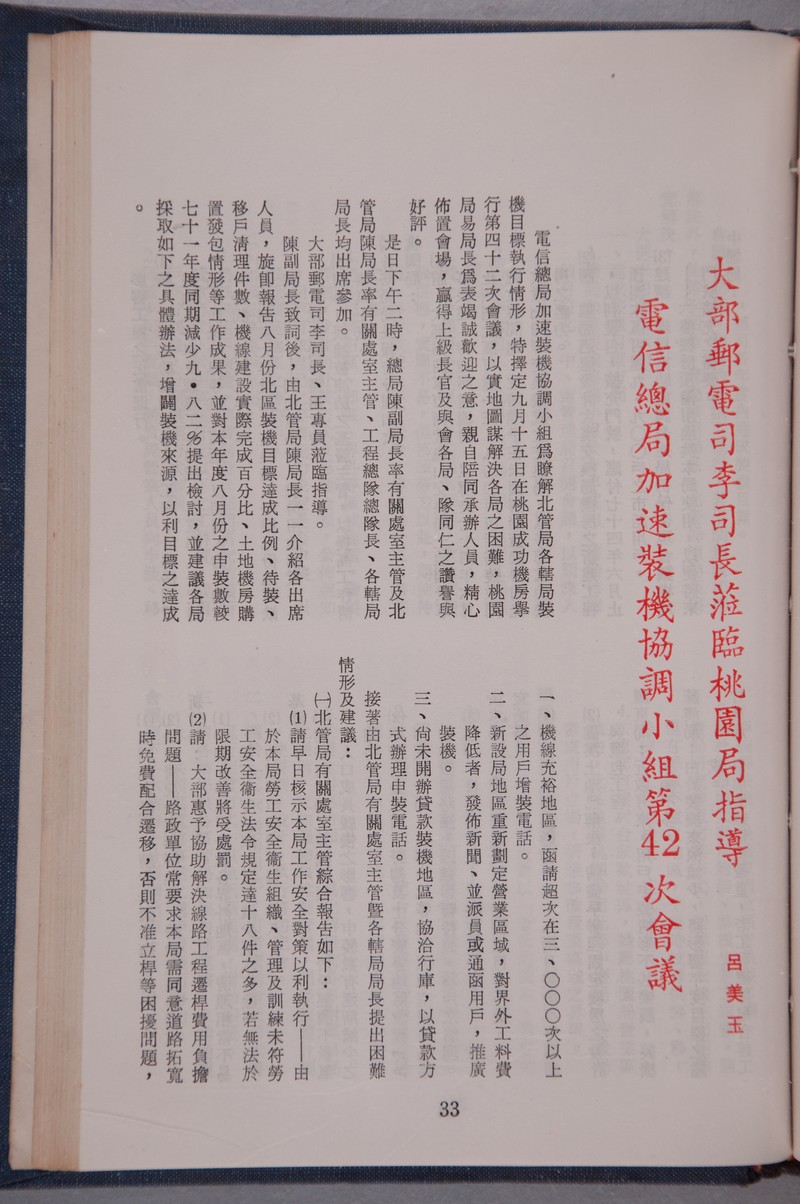 大部郵電司李司長蒞臨桃園局指導
電信總局加速裝機協調小組第42次會議
呂美玉
電信總局加速裝機協調小組為瞭解北管局各轄局裝
機目標執行情形，特擇定九月十五日在桃園成功機房舉
行第四十二次會議，以實地圖謀解決各局之困難，桃園
局易局長為表竭誠歡迎之意，親自陪同承辦人員，精心
佈置會場，贏得上級長官及與會各局、隊同仁之讚譽與
好評。
是日下午二時，總局陳副局長率有關處室主管及北
管局陳局長率有關處室主管、工程總隊總隊長、各轄局
局長均出席參加。
大部郵電司李司長、王專員蒞臨指導。
陳副局長致詞後，由北管局陳局長一一介紹各出席
人員，旋卽報告八月份北區裝機目標達成比例、待裝、
移戶淸理件數、機線建設實際完成百分比、土地機房購
置發包情形等工作成果，並對本年度八月份之申裝數較
七十一年度同期減少九•八二％提出檢討，並建議各局
採取如下之具體辦法，增闢裝機來源，以利目標之達成
。
一、機線充裕地區，函請超次在三、〇〇〇次以上
之用戶增裝電話。
二、新設局地區重新劃定營業區域，對界外工料費
降低者，發佈新聞、並派員或通函用戶，推廣
裝機。
三、尙未開辦貸款裝機地區，協洽行庫，以貸款方
式辦理申裝電話。
接著由北管局有關處室主管暨各轄局局長提出困難
情形及建議：
㈠北管局有關處室主管綜合報告如下：
⑴請早日核示本局工作安全對策以利執行——由
於本局勞工安全衞生組織、管理及訓練未符勞
工安全衞生法令規定達十八件之多，若無法於
限期改善將受處罰。
⑵請　大部惠予協助解決線路工程遷桿費用負擔
問題——路政單位常要求本局需同意道路拓寬
時免費配合遷移，否則不准立桿等困擾問題，
33